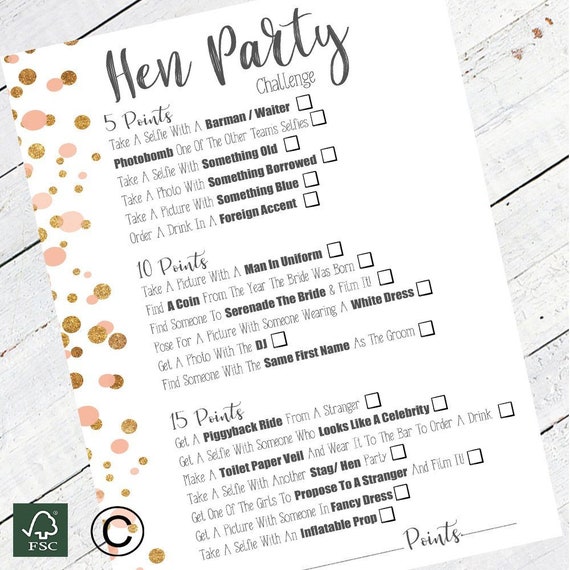 Hen Party
Challenge
5 Points
Take A Selfie With A Barman / Waiter
Photobomb One Of The Other Teams Selfies
Take A Selfie With Something Old
Take A Photo With Something Borrowed
Take A Picture With Something Blue
Order A Drink In A Foreign Accent
10 Points
Take A Picture With A Man In Uniform
Find A Coin From The Year The Bride Was Born
Find Someone To Serenade The Bride & Film It!
Pose For A Picture With Someone Wearing A White Dress
Get A Photo With The DJ
Find Someone With The Same First Name As The Groom
15 Points
Get A Piggyback Ride From A Stranger
Get A Selfie With Someone Who Looks Like A Celebrity
Make A Toilet Paper Veil And Wear It To The Bar To Order A Drink
Take A Selfie With Another Stag/ Hen Party
Get One Of The Girls To Propose To A Stranger And Film It!
Get A Picture With Someone In Fancy Dress
Take A Selfie With An Inflatable Prop
Points
FSC
C